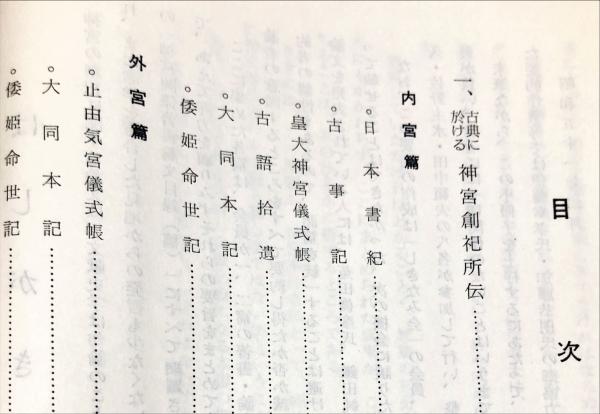 目次
一、古典に於ける 神宮創祀所伝…………
内宮篇
。日本書紀…………
。古事記…………
。皇大神宮儀式帳…………
。古語拾遺…………
。大同本記…………
。倭姫命世記…………
外宮篇
。止由気宮儀式帳…………
。大同本記…………
。倭姫命世記…………